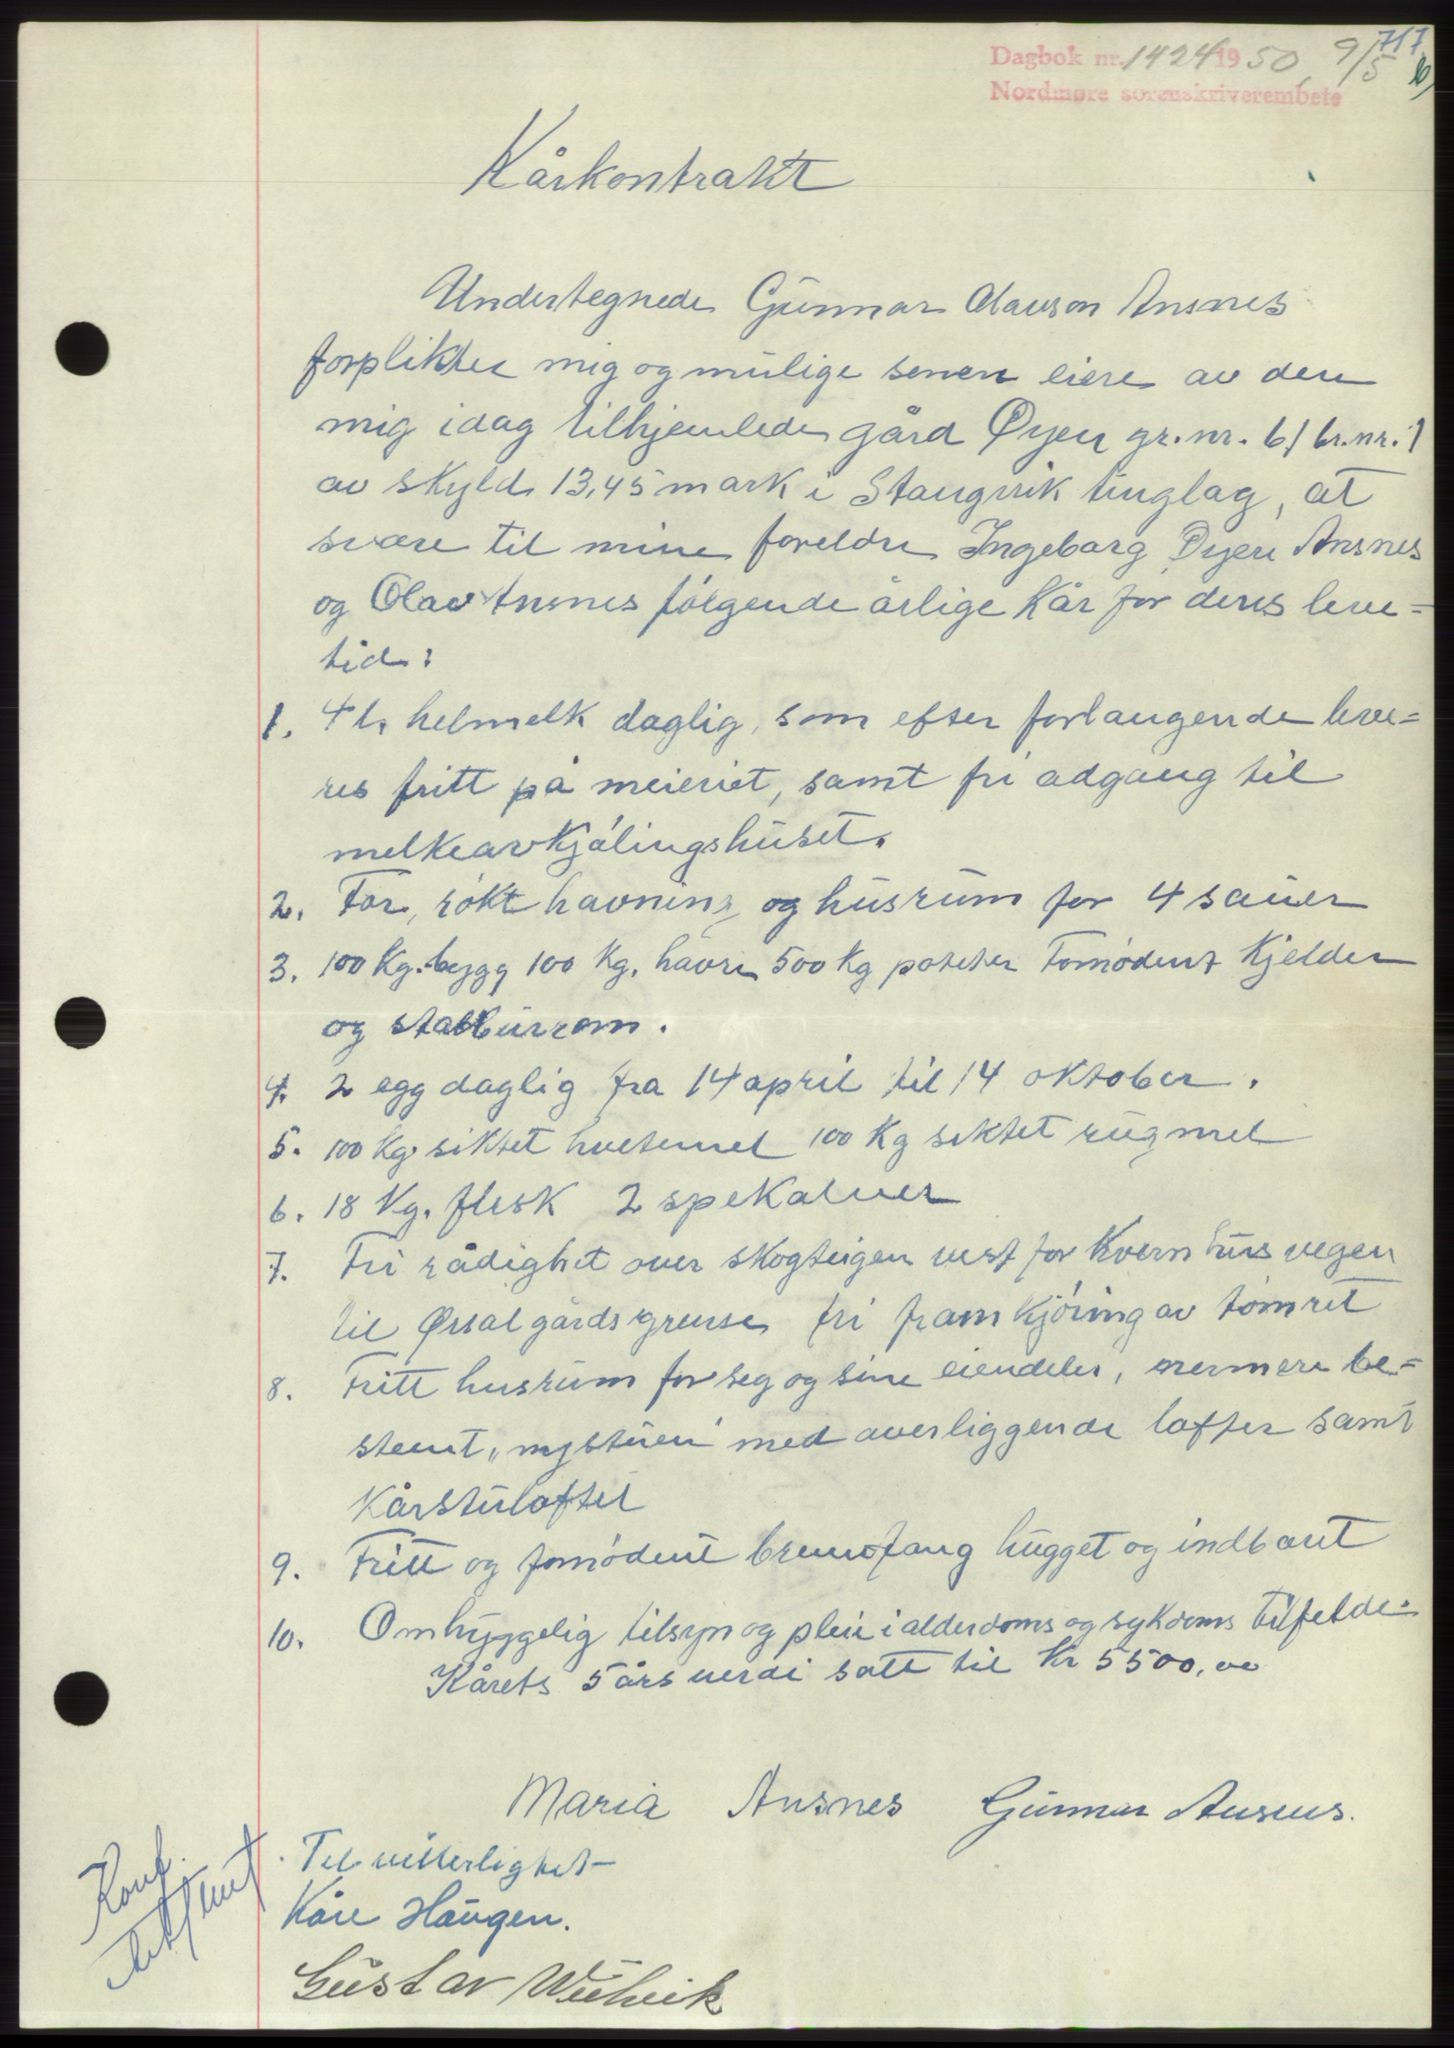 717
Dagbok nr. 1424 1950 9/5
Nordmøre sorenskriverembete
Kårkontrakt
Undertegnede Gunnar Olavson Ansnes
forplikter mig og mulige senere eiere av den
mig idag tilhjemlede gård Øyen gr.nr. 61 br.nr. 1
av skyld 13,45 mark i Stangvik tinglag, at
svare til mine foreldre Ingeborg Øyen Ansnes
og Olav Ansnes følgende årlige kår for deres leve=
tid:
1. 4 l. helmelk daglig, som efter forlangende leve=
res fritt på meieriet, samt fri adgang til
melkeavkjølingshuset.
2. For, røkt havning og husrum for 4 sauer
3. 100 Kg. bygg 100 Kg. havre 500 Kg poteter fornødent kjelder
og stabbursrom.
4. 2 egg daglig fra 14 april til 14 oktober.
5. 100 Kg. siktet hvetemel 100 Kg siktet rugmel
6. 18 Kg. flesk 2 spekalver
7. Fri rådighet over skogteigen vest for Kvernhusvegen
til Ørsalgårdsgrense fri framkjøring av tømret
8. Fritt husrum for seg og sine eiendeler, nermere be=
stemt „nystuen" med overliggende lofter samt
Kårstuloftet
9. Fritt og fornødent brennefang hugget og indbaret
10. Omhyggelig tilsyn og pleie i alderdoms og sykdoms tilfelde.
Kårets 5 års verdi satt til Kr 5500,00
Maria Ansnes Gunnar Ansnes.
Til vitterlighet
Kåre Haugen.
Gustav
Konf.